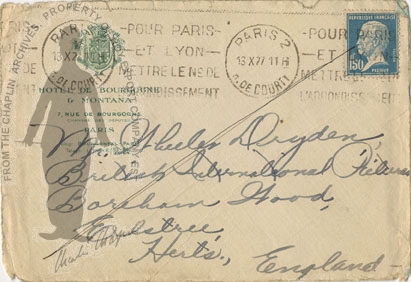 FROM THE CHAPLIN ARCHIVES, PROPERTY OF
PARIS 2
13 X 27 11H
R. DE COURTY
POUR PARIS
ET LYON
METTRE LE No DE
PARIS 2
13 X 27 11H
R. DE COURTY
POUR PARIS
RÉPUBLIQUE FRANÇAISE
150
HOTEL DE BOURGOGNE
& MONTANA
7, RUE DE BOURGOGNE
PARIS
Mr. Wheeler Dryden,
British International Pictures
Boreham Wood,
Elstree,
Herts,
England
Charlie Chaplin